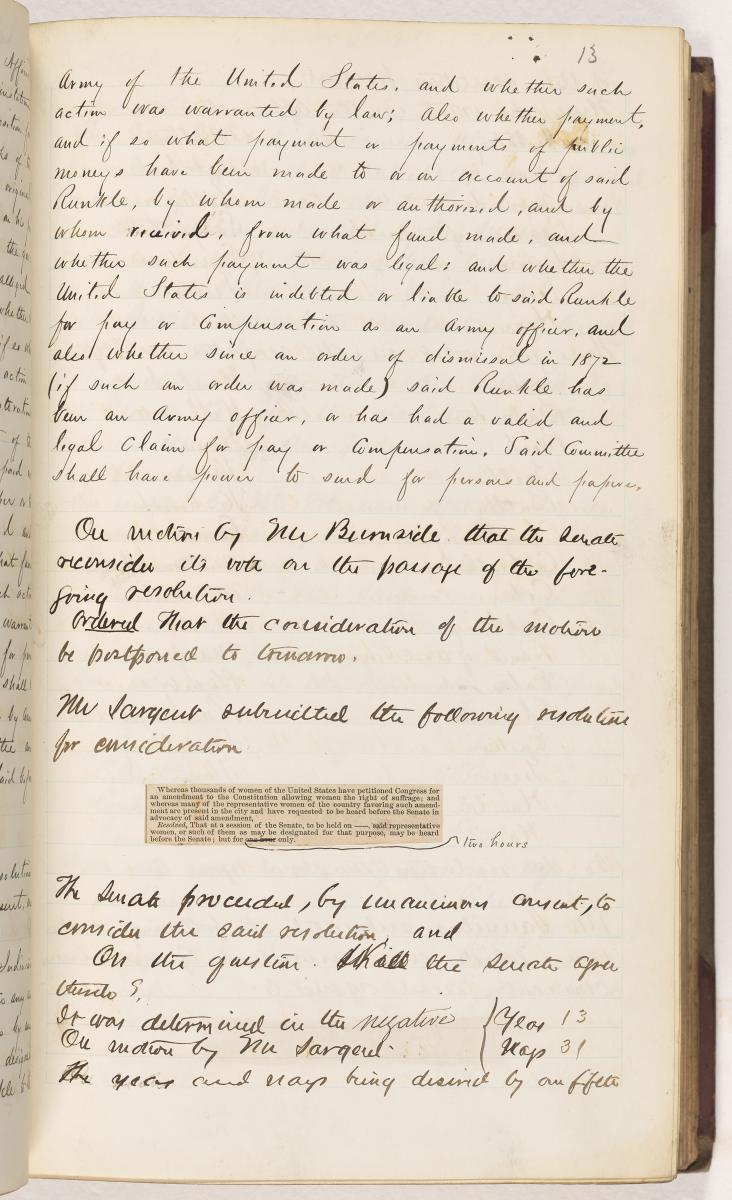 13
Army of the United States, and whether such
action was warranted by law; also whether payment,
and if so what payment or payments of public
moneys have been made to or on account of said
Runkle, by whom made or authorized, and by
whom received, from what fund made, and
whether such payment was legal; and whether the
United States is indebted or liable to said Runkle
for pay or compensation as an Army officer, and
also whether since an order of dismissal in 1872
(if such an order was made) said Runkle has
been an Army officer, or has had a valid and
legal claim for pay or compensation. Said Committee
shall have power to send for persons and papers.
On motion by Mr Burnside that the Senate
reconsider its vote on the passage of the fore-
going resolution.
Ordered That the consideration of the motion
be postponed to tomorrow.
Mr Sargent submitted the following resolution
for consideration
Whereas thousands of women of the United States have petitioned Congress for
an amendment to the Constitution allowing women the right of suffrage; and
whereas many of the representative women of the country favoring such amend-
ment are present in the city and have requested to be heard before the Senate in
advocacy of said amendment,
Resolved, That at a session of the Senate, to be held on ——, said representative
women, or such of them as may be designated for that purpose, may be heard
before the Senate; but for one hour only.
two hours
The Senate proceeded, by unanimous consent, to
consider the said resolution, and
On the question. Shall the Senate agree
thereto?,
It was determined in the negative { Yeas 13
On motion by Mr Sargent. { Nays 31
The yeas and nays being desired by one fifth